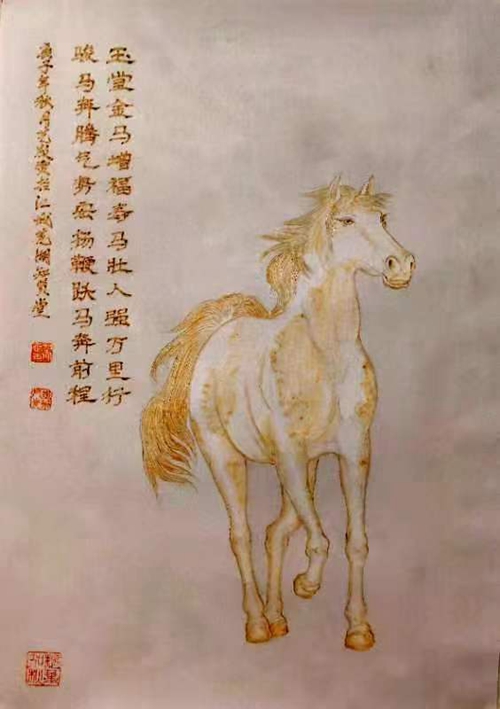 玉堂金马增福寿马壮人强万里行
骏马奔腾气势宏扬鞭跃马奔前程
庚子年秋月 在江城 湖 堂